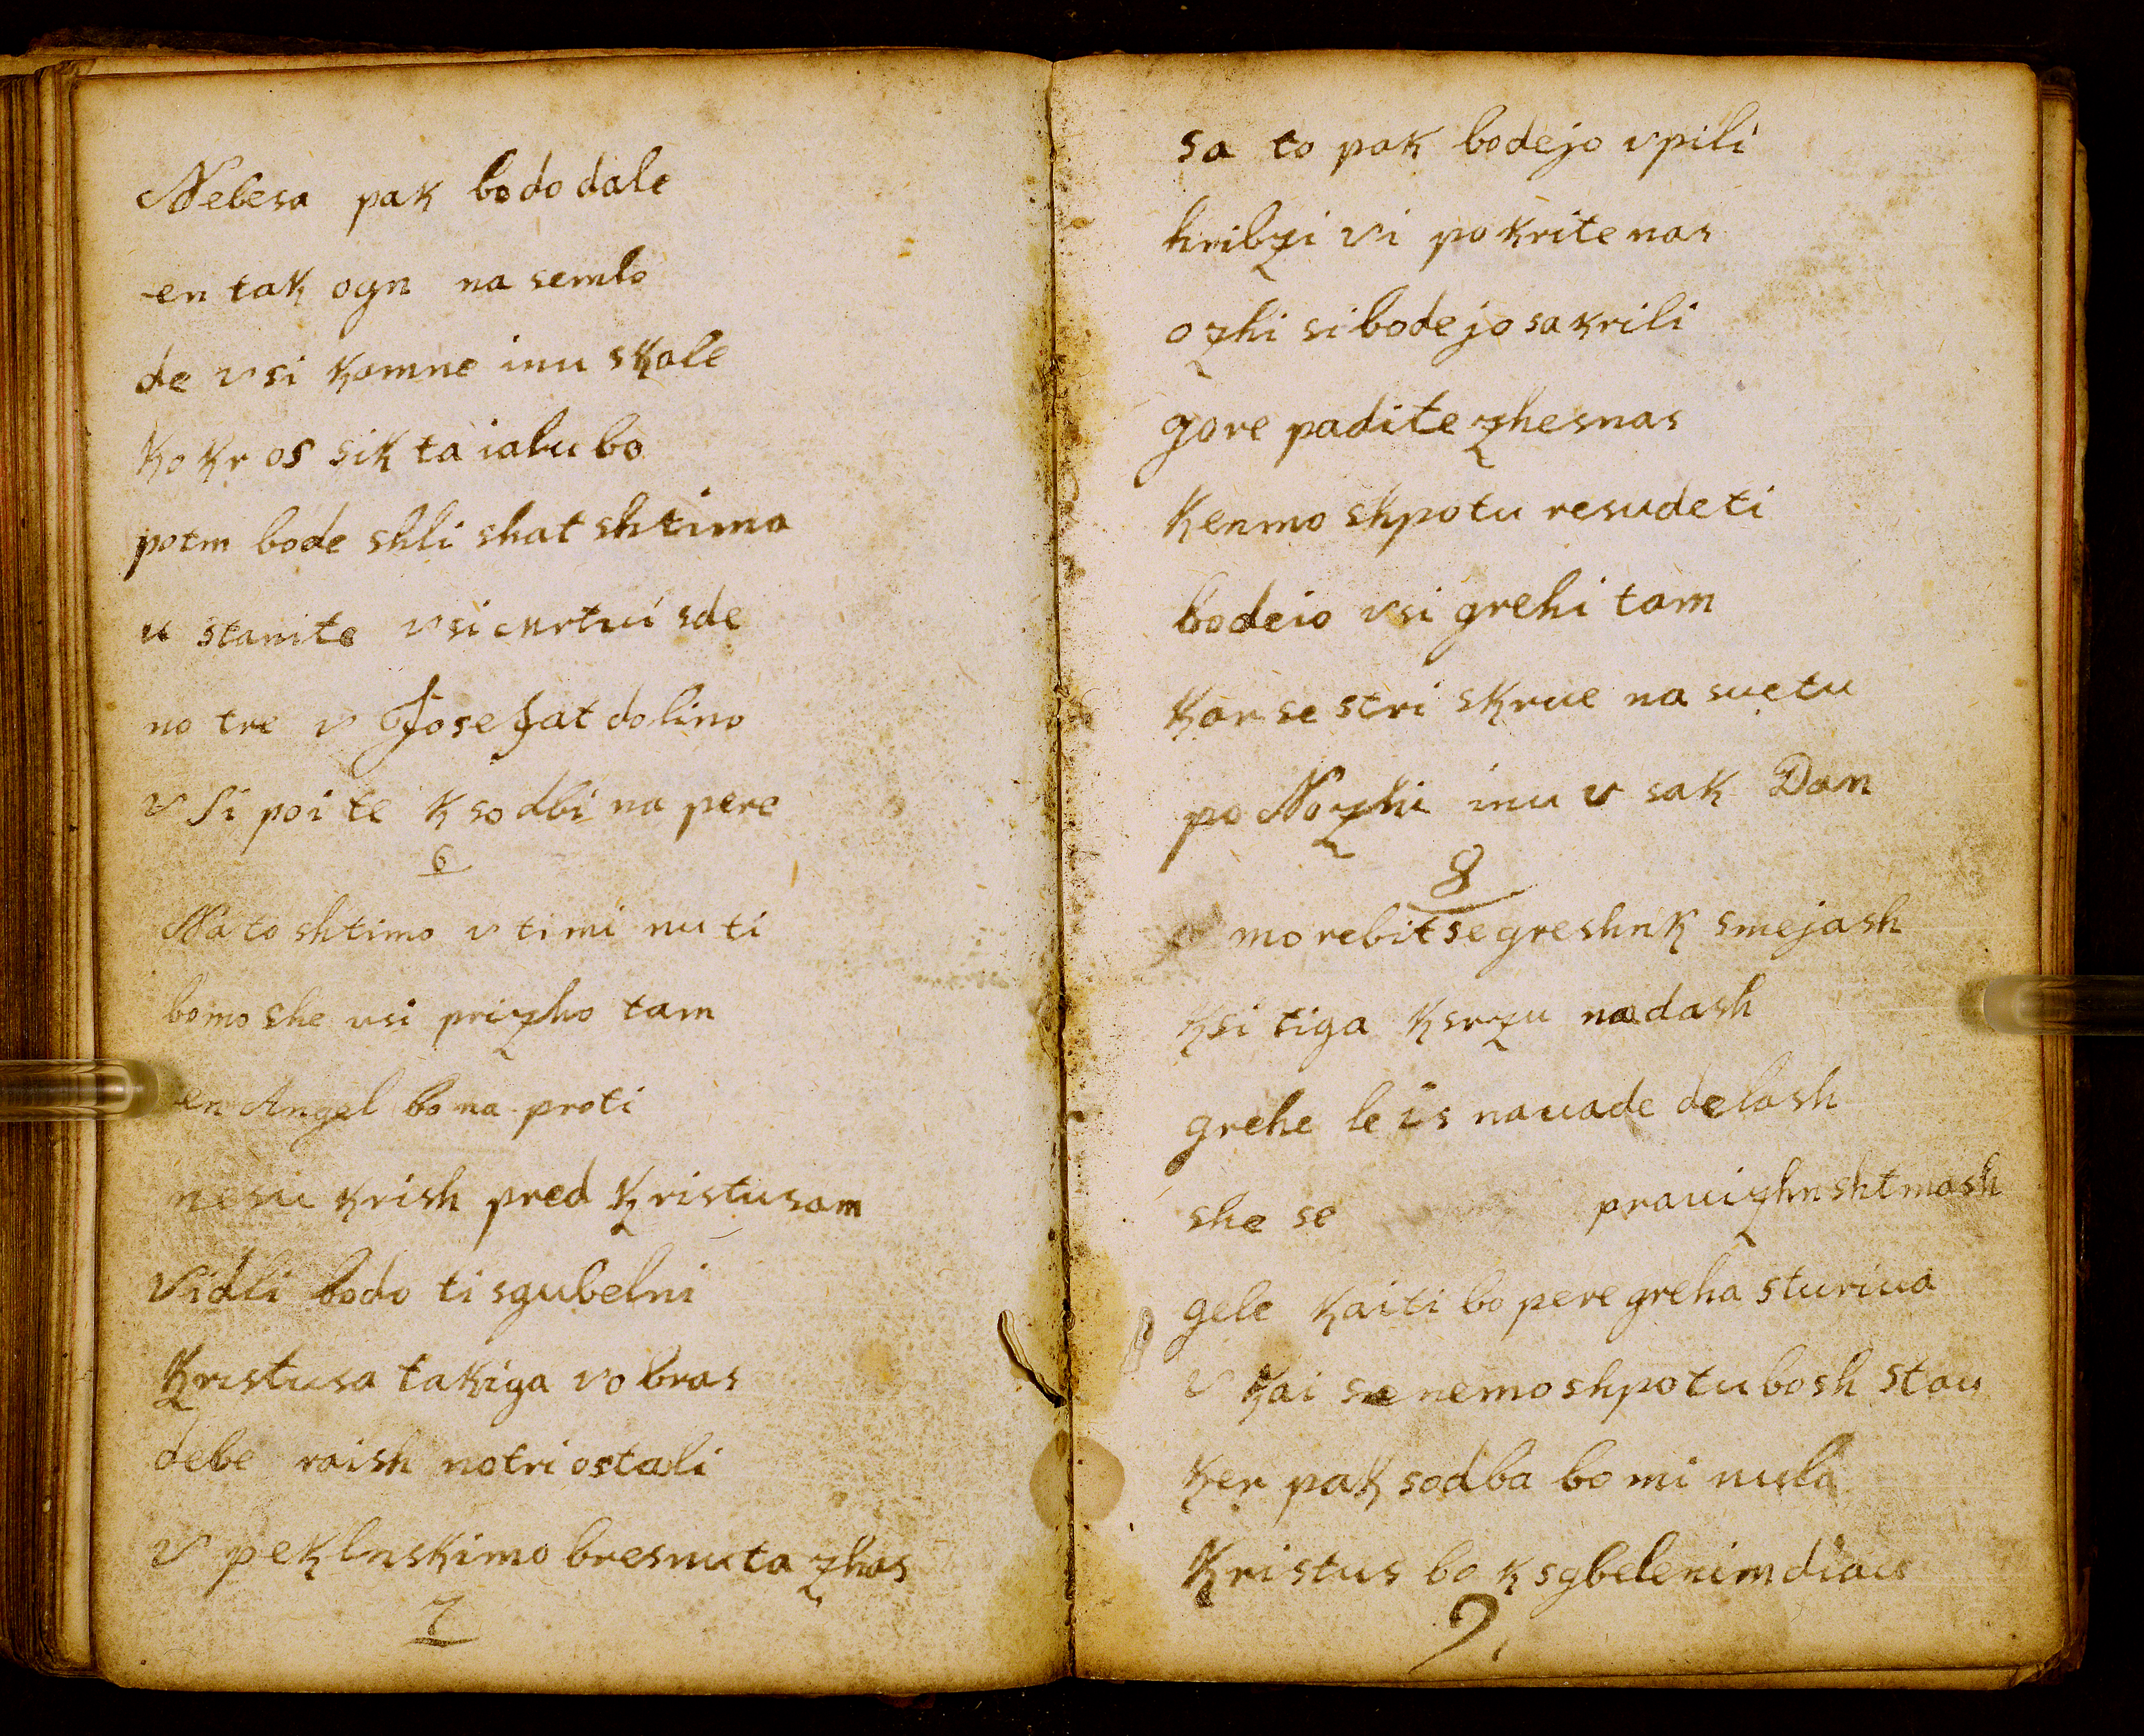 Nebesa pak bodo dale
en tak ogn na semlo
de vsi kamne inu skale
kokr os sik ta ialu bo
potm bode shli shat shtimo
u stanite vsi mrtui sde
no tre v Josefat dolino
vsi poite k sodbi na pere
6
Na to shtimo v ti mi nu ti
bomo she usi prizho tam
en Angel bo na proti
nesu krish pred kristusam
vidli bodo ti sgubelni
kristusa takiga vobras
debe raish notri ostali
v peklnskimo bresnu ta zhas
7
sa to pak bodejo vpili
hribzi vi pokrite nas
ozhi si bodejo sakrili
gore padite zhesnas
kenmo shpotu resudeti
bodeio vsi grehi tam
kar se stri skrue na suetu
po Nozhi inu v sak Dan
8
morebit se greshnk smejash
ksi tiga ksrzu nadash
grehe le is nauade delash
she se prauizhn shtmash
gele kaiti bo pere greha sturiua
v kai sa nemo shpotu bosh stau
ker pak sodba bo mi nula
kristus bo k sgbelenim diau
9.